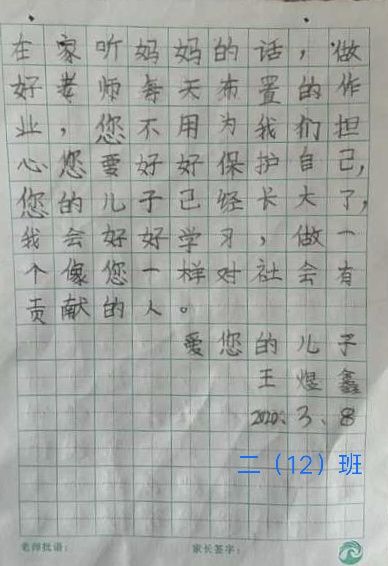 在家听妈妈的话，做
好老师每天布置的作
业，您不用为我们担
心您要好好保护自己,
您的儿子已经长大了,
我会好好学习，做一
个像您一样对社会有
贡献的人。
爱您的儿子
王煜鑫
2020、3、8
二（12）班
老师批语：
家长签字：